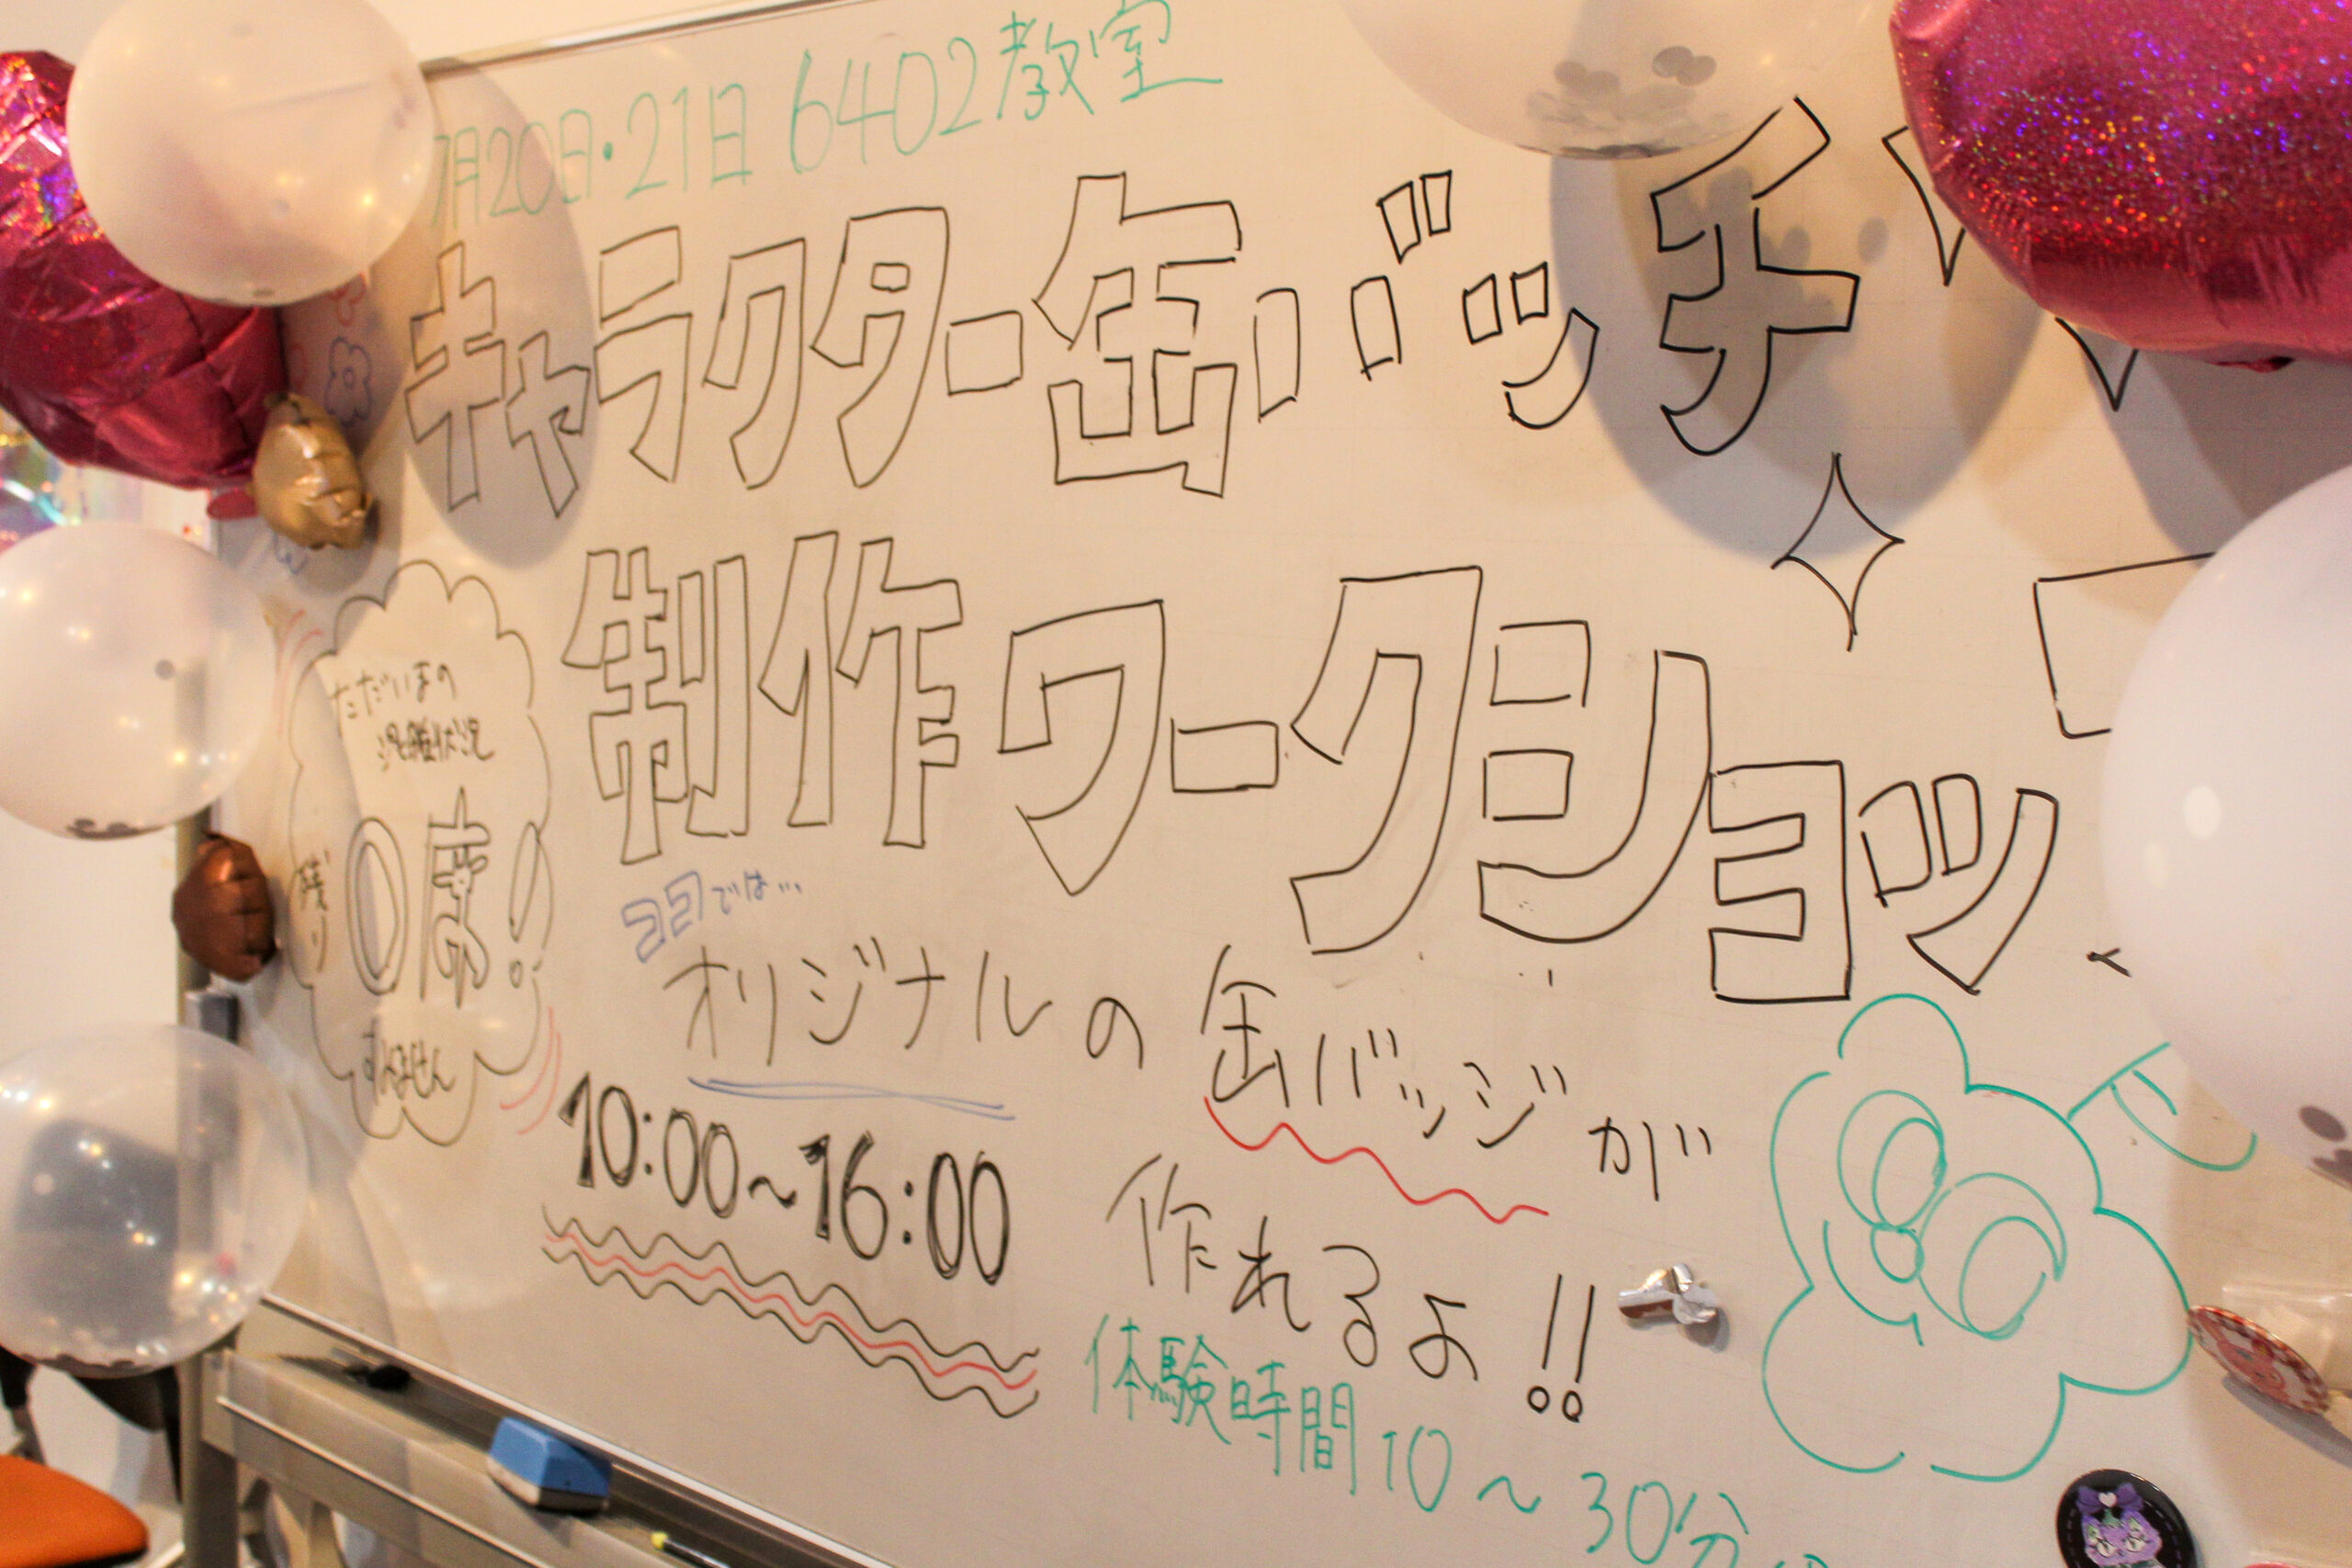 7月20日・21日 6402教室
キャラクター缶バッチ
制作ワークショッ
ただいまの
残り 0席!
すみません
ココでは…
オリジナルの缶バッジが
作れるよ!!
10:00~16:00
体験時間10~30分